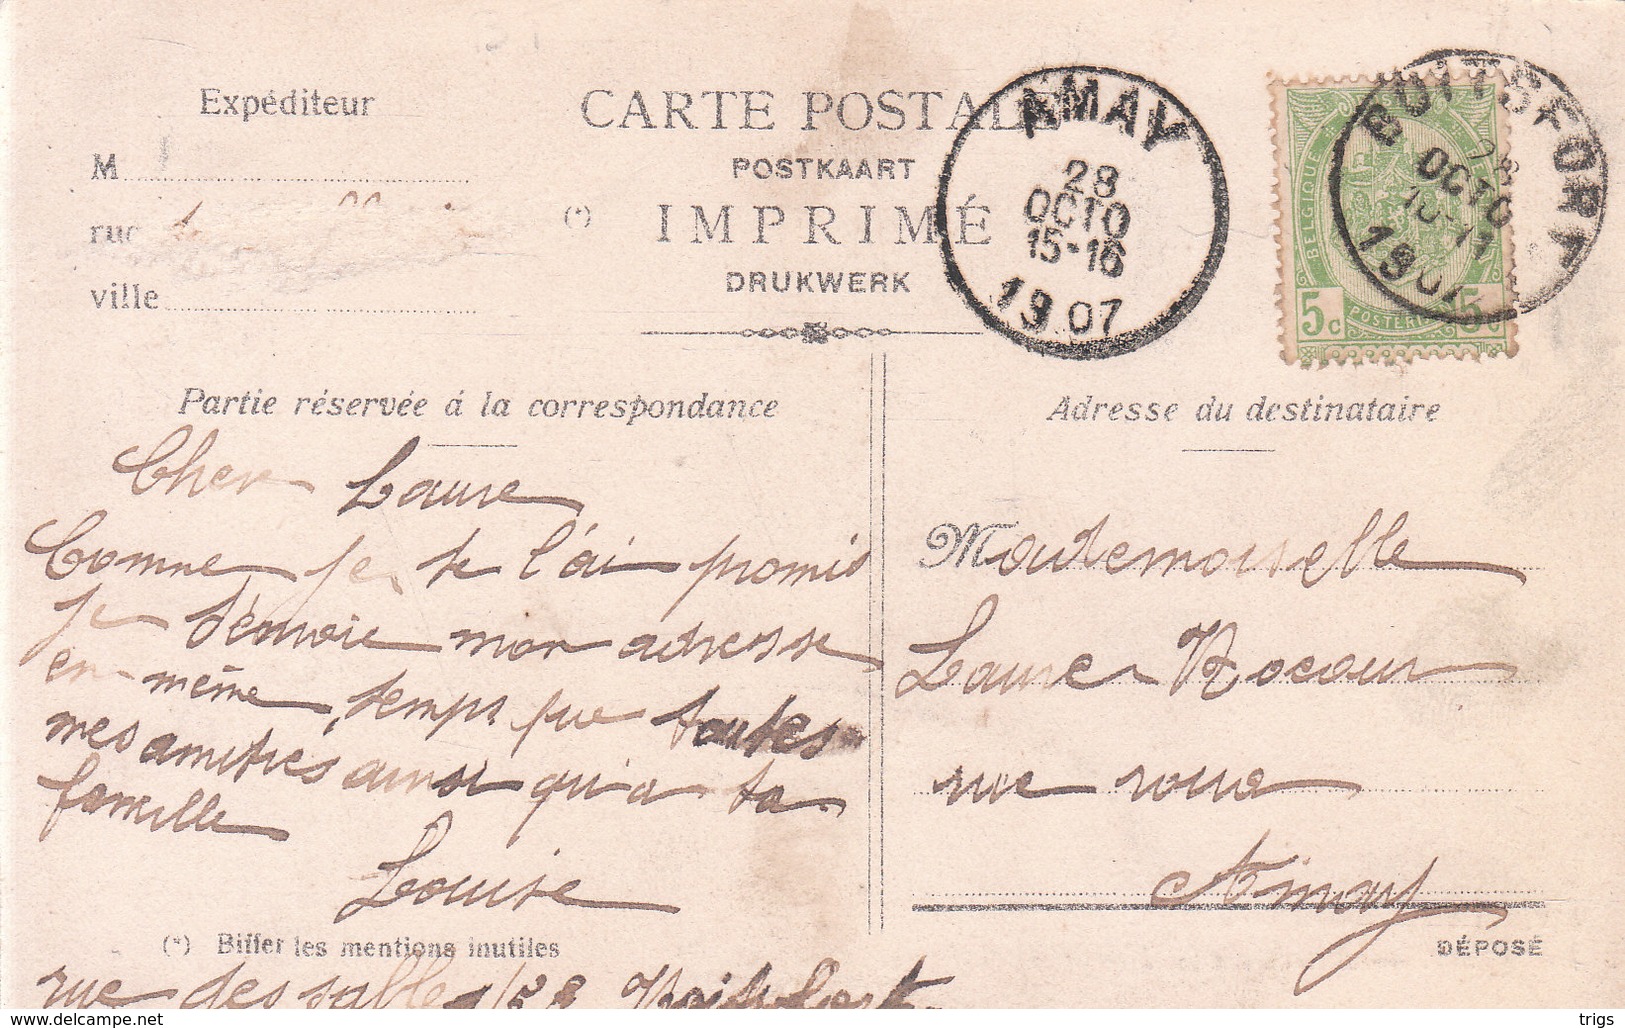 Expéditeur
M
rue
ville
CARTE POSTALE
POSTKAART
(*) IMPRIMÉ
DRUKWERK
AMAY
28
OCTO
15-16
1907
BOITSFORT
28
OCTO
10-11
1907
BELGIQUE
5c POSTERIJ 5c
Partie réservée à la correspondance
Cher Laure
Comme je te l'ai promis
je t'envoie mon adresse
en même temps que toutes
mes amitiés ainsi qu'a ta
famille
Louise
(*) Biffer les mentions inutiles
rue des sables Boitsfort
Adresse du destinataire
Mademoiselle
Laure Rocour
rue roua
Amay
DÉPOSÉ
www.delcampe.net
trigs